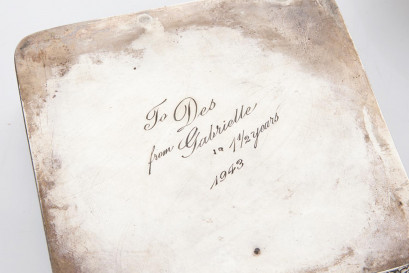 To Des
from Gabrielle
in 1½ years
1943